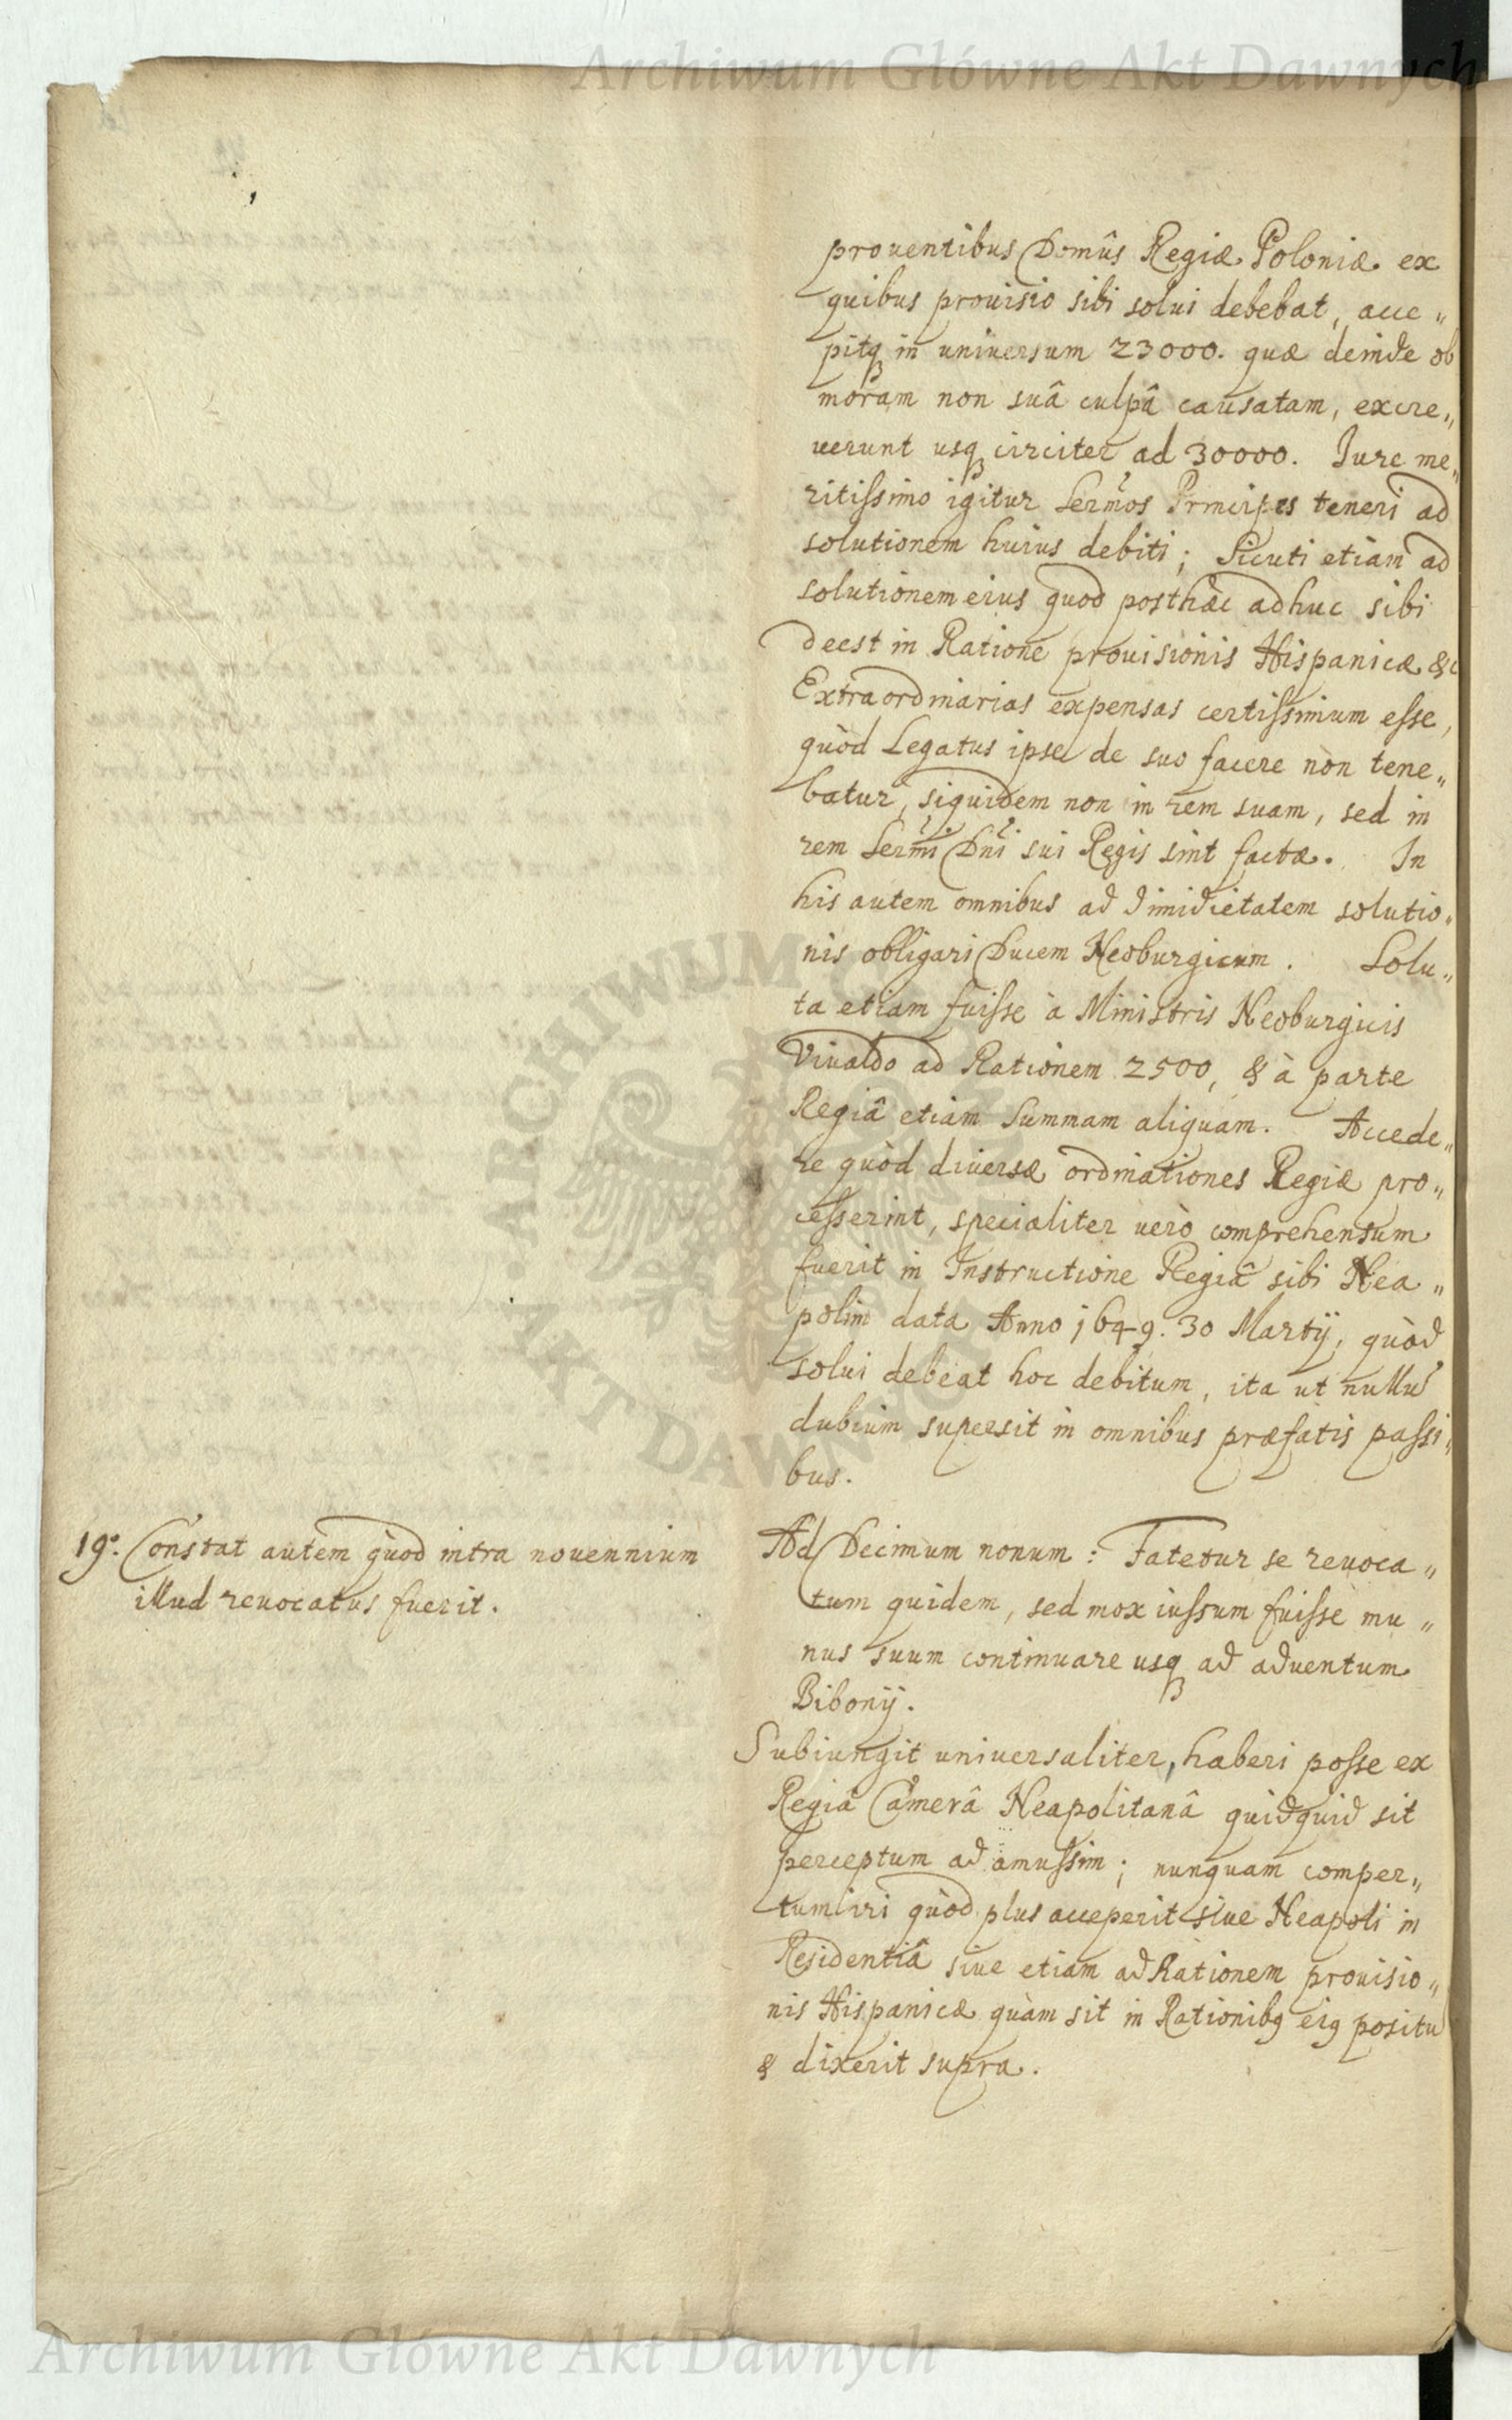 Archiwum Główne Akt Dawnych
prouentibus Domûs Regiæ Poloniæ ex
quibus prouisio sibi solui debebat, acce„
pitq in uniuersum 23000. quæ deinde ob
moram non suâ culpâ causatam, excre„
uerunt usq circiter ad 30000. Jure me„
ritissimo igitur Sermos Principes teneri ad
solutionem huius debiti; Sicuti etiam ad
solutionem eius quod posthàc adhuc sibi
deest in Ratione prouisionis Hispanicæ &c
Extraordinarias expensas certissimum esse,
quòd Legatus ipse de suo facere non tene„
batur, siquidem non in rem suam, sed in
rem Sermi Dni sui Regis sint factæ. In
his autem omnibus ad dimidietatem solutio„
nis obligari Ducem Neoburgicum. Solu„
ta etiam fuisse à Ministris Neoburgicis
Viualdo ad Rationem 2500, & à parte
Regiâ etiam Summam aliquam. Accede„
re quòd diuersæ ordinationes Regiæ pro„
cesserint, specialiter uerò comprehensum
fuerit in Instructione Regiâ sibi Nea„
polim data Anno 1649. 30 Martij, quòd
solui debeat hoc debitum, ita ut nullu
dubium supersit in omnibus præfatis passi„
bus.
19. Constat autem quod intra nouennium
illud reuocatus fuerit.
Ad Decimum nonum: Fatetur se reuoca„
tum quidem, sed mox iussum fuisse mu„
nus suum continuare usq ad aduentum
Bibonij.
Subiungit uniuersaliter, haberi posse ex
Regiâ Camerâ Neapolitanâ quidquid sit
perceptum ad amussim; nunquam comper„
tum iri quòd plus acceperit siue Neapoli in
Residentiâ siue etiam ad Rationem prouisio„
nis Hispanicæ quàm sit in Rationibq eiq positu
& dixerit supra.
ARCHIWUM GŁÓWNE AKT DAWNYCH
Archiwum Główne Akt Dawnych